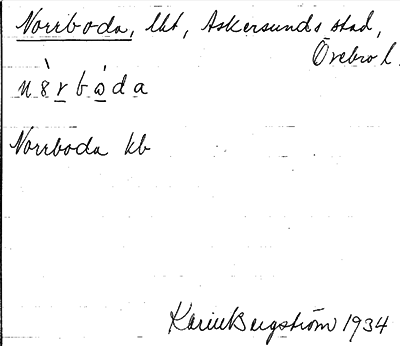 Norrboda, lkt, Askersunds stad,
Örebro l.
Norrboda kb
Karin Bergström 1934